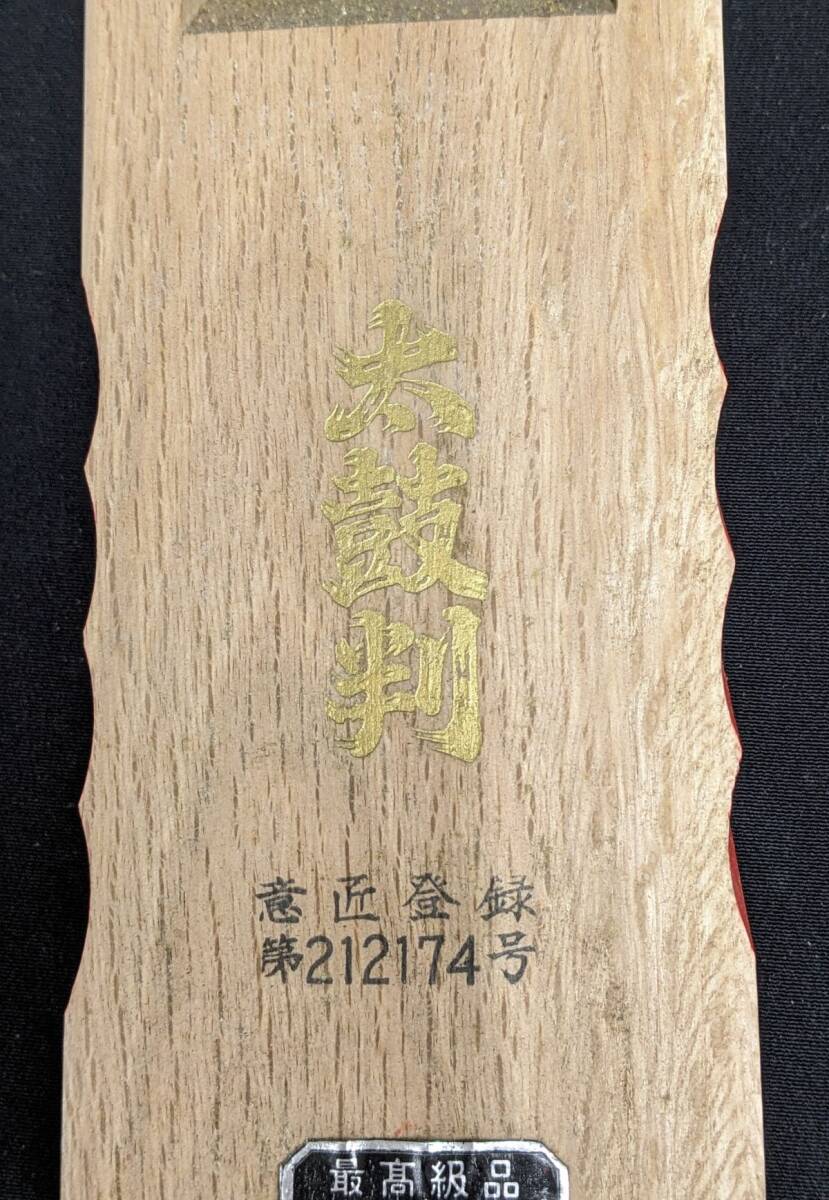 太鼓判
意匠登録
第212174号
最髙級品